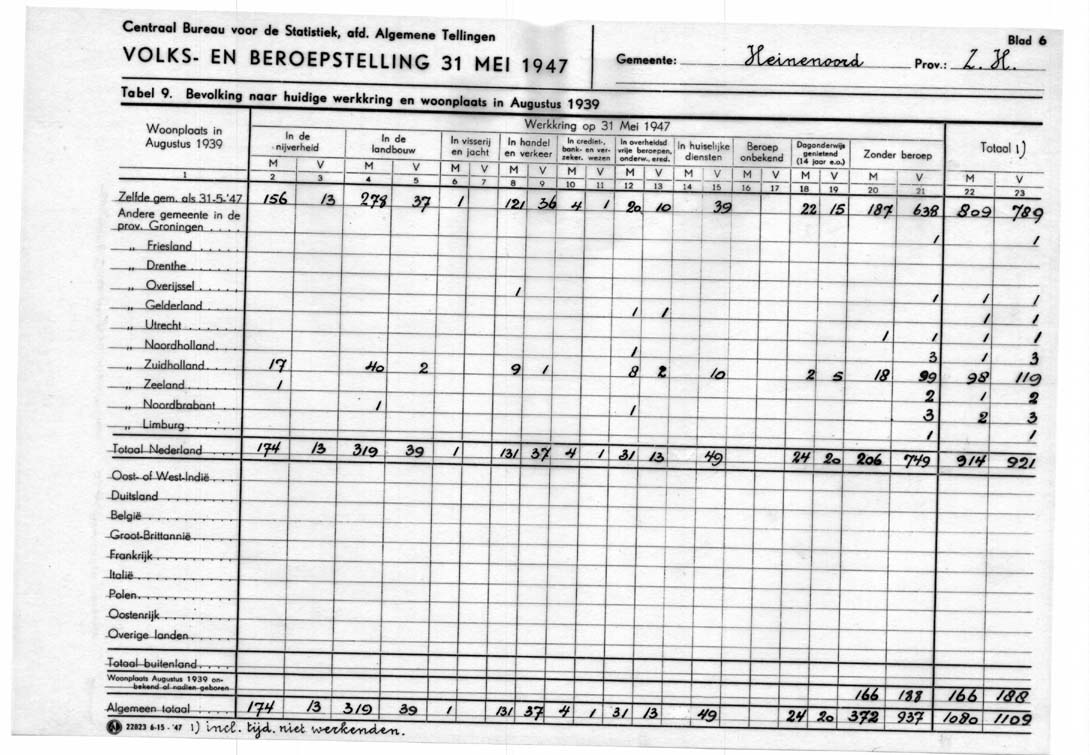 Centraal Bureau voor de Statistiek, afd. Algemene Tellingen
VOLKS- EN BEROEPSTELLING 31 MEI 1947
Gemeente: Heinenoord Prov.: Z. H.
Blad 6
Tabel 9. Bevolking naar huidige werkkring en woonplaats in Augustus 1939
Woonplaats in Augustus 1939
Werkkring op 31 Mei 1947
In de nijverheid
In de landbouw
In visserij en jacht
In handel en verkeer
In crediet-, bank- en verzeker. wezen
In overheidsd vrije beroepen, onderw., ered.
In huiselijke diensten
Beroep onbekend
Dagonderwijs genietend (14 jaar e.o.)
Zonder beroep
Totaal 1)
M V M V M V M V M V M V M V M V M V M V M V
1 2 3 4 5 6 7 8 9 10 11 12 13 14 15 16 17 18 19 20 21 22 23
Zelfde gem. als 31-5-'47 156 13 278 37 1 121 36 4 1 20 10 39 22 15 187 638 809 789
Andere gemeente in de
prov. Groningen . . . . 1 1
„ Friesland . . . . . .
„ Drenthe . . . . . . .
„ Overijssel . . . . . . 1 1 1 1
„ Gelderland . . . . . 1 1 1 1
„ Utrecht . . . . . . . 1 1 1 1
„ Noordholland . . . 1 3 1 3
„ Zuidholland . . . . 17 40 2 9 1 8 2 10 2 5 18 99 98 119
„ Zeeland . . . . . . . 1 2 1 2
„ Noordbrabant . . . 1 1 3 2 3
„ Limburg . . . . . . . 1 1
Totaal Nederland . . . . 174 13 319 39 1 131 37 4 1 31 13 49 24 20 206 749 914 921
Oost- of West-Indië . . . .
Duitsland . . . . . . . . . .
België . . . . . . . . . . . .
Groot-Brittannië . . . . . .
Frankrijk . . . . . . . . . . .
Italië . . . . . . . . . . . . .
Polen . . . . . . . . . . . . .
Oostenrijk . . . . . . . . . .
Overige landen . . . . . . .
Totaal buitenland . . . . .
Woonplaats Augustus 1939 on-
bekend of nadien geboren 166 188 166 188
Algemeen totaal . . . . . 174 13 319 39 1 131 37 4 1 31 13 49 24 20 372 937 1080 1109
22823 6-15 - '47 1) incl. tijd. niet werkenden.